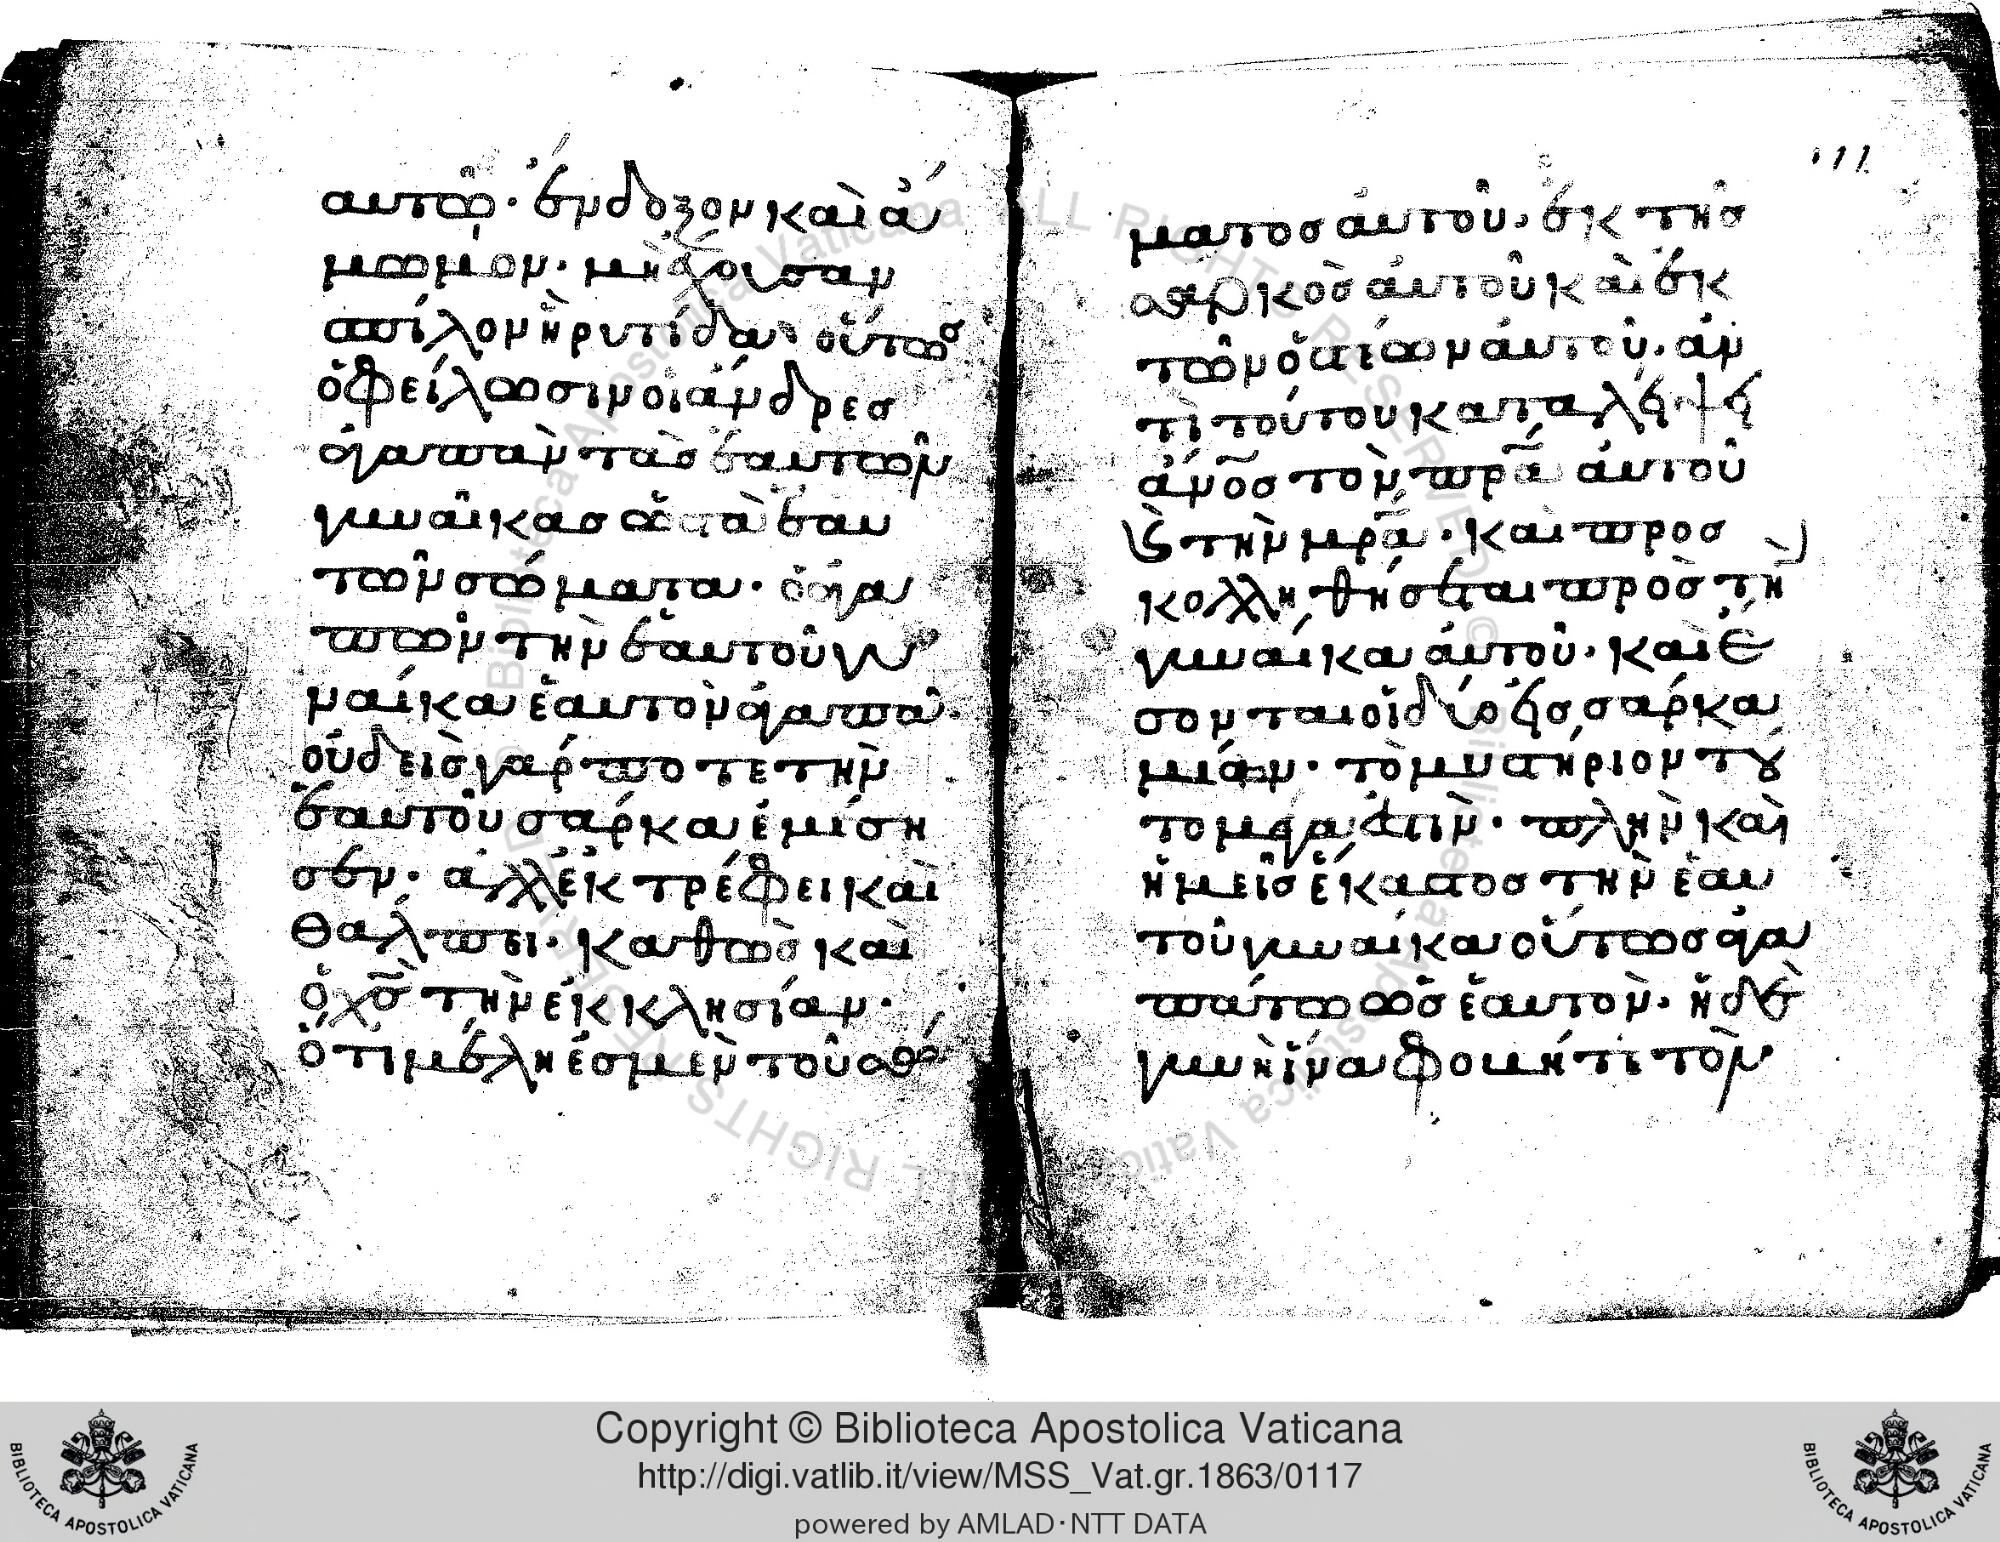 αυτῶ· ἔνδοξον καὶ ἄ
μωμον· μὴ ἔχουσαν
σπίλον ἢ ρυτίδα· οὕτως
ὀφείλωσιν οἱ ἄνδρες
ἀγαπᾶν τὰς ἑαυτῶν
γυναῖκας ὡς τὰ ἑαυ
τῶν σώματα· ὁ ἀγα
πῶν τὴν ἑαυτοῦ γυ
ναίκα ἑαυτὸν ἀγαπᾶ·
οὐδεὶς γάρ ποτε τὴν
ἑαυτοῦ σάρκα ἐμίση
σεν· ἀλλ ἐκτρέφει καὶ
θάλπει· καθὼς καὶ
ὁ χς τὴν ἐκκλησίαν·
ὅτι μέλη ἐσμὲν τοῦ σώ
111
ματος αὐτοῦ· ἐκ τῆς
σαρκὸς αὐτοῦ καὶ ἐκ
τῶν ὀστέων αὐτοῦ· ἀν
τὶ τούτου καταλείψει
ἄνος τὸν πρα αὐτοῦ
καὶ τὴν μρα· καὶ προς
κολληθήσεται πρὸς τὴν
γυναίκα αὐτοῦ· καὶ ἔ
σονται οἱ δύο εἰς σάρκα
μίαν· τὸ μυστήριον τοῦ
το μέγα ἐστὶν· πλὴν καὶ
ἡμεῖς ἕκαστος τὴν ἑαυ
τοῦ γυναίκα οὕτως ἀγα
πάτω ὡς ἑαυτὸν· ἡ δὲ
γυνὴ ἵνα φοβῆτι τὸν
Copyright © Biblioteca Apostolica Vaticana
http://digi.vatlib.it/view/MSS_Vat.gr.1863/0117
powered by AMLAD·NTT DATA
BIBLIOTECA APOSTOLICA VATICANA
BIBLIOTECA APOSTOLICA VATICANA